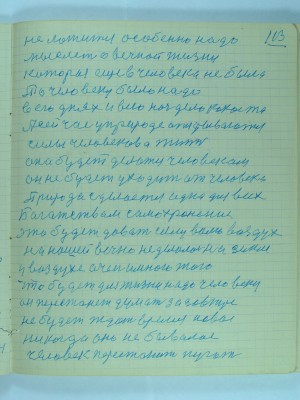 103
не ложится особенно надо
мыслет о вечной жизни
которая еще в человека не была
то человеку было надо
в его днях и
А сейчас у природе открываются
силы человекова жить
она будет делать человеком
он не будет уходить от человека
Природа сделается одна для всех
Богатством самохронение
это будет давать силу вам воздух
на нашей вечно неделеной земле
у воздухе очень много того
что будет для жизни надо человеку
он перестанет думать за завтра
не будет ждать время новое
никогда оно не бывалое
человек перестанет пугать